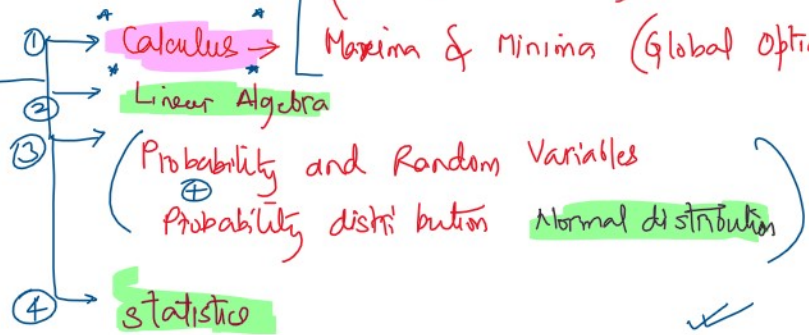 ① → Calculus → Maxima & Minima (Global Opti
② → Linear Algebra
③ → (Probability and Random Variables
+
Probability distribution Normal distribution)
④ → Statistics